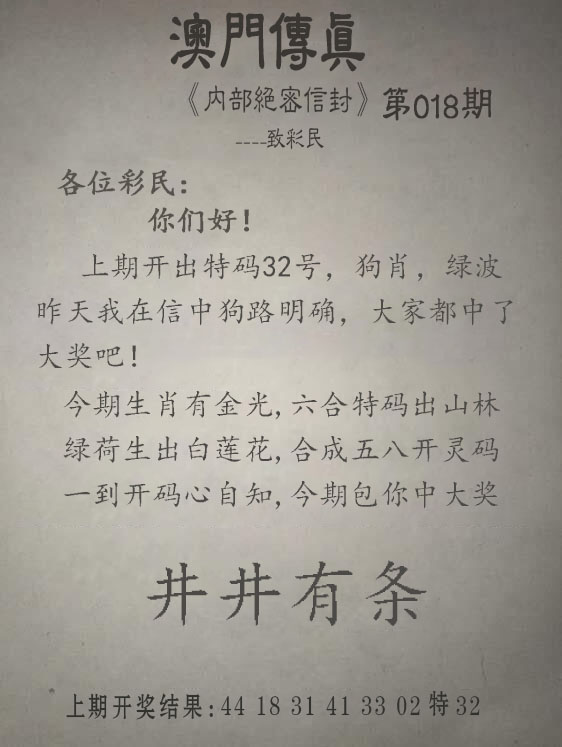 澳門傳眞
《内部絕密信封》第018期
----致彩民
各位彩民：
你们好！
上期开出特码32号，狗肖，绿波
昨天我在信中狗路明确，大家都中了
大奖吧！
今期生肖有金光,六合特码出山林
绿荷生出白莲花,合成五八开灵码
一到开码心自知,今期包你中大奖
井井有条
上期开奖结果:44 18 31 41 33 02特32